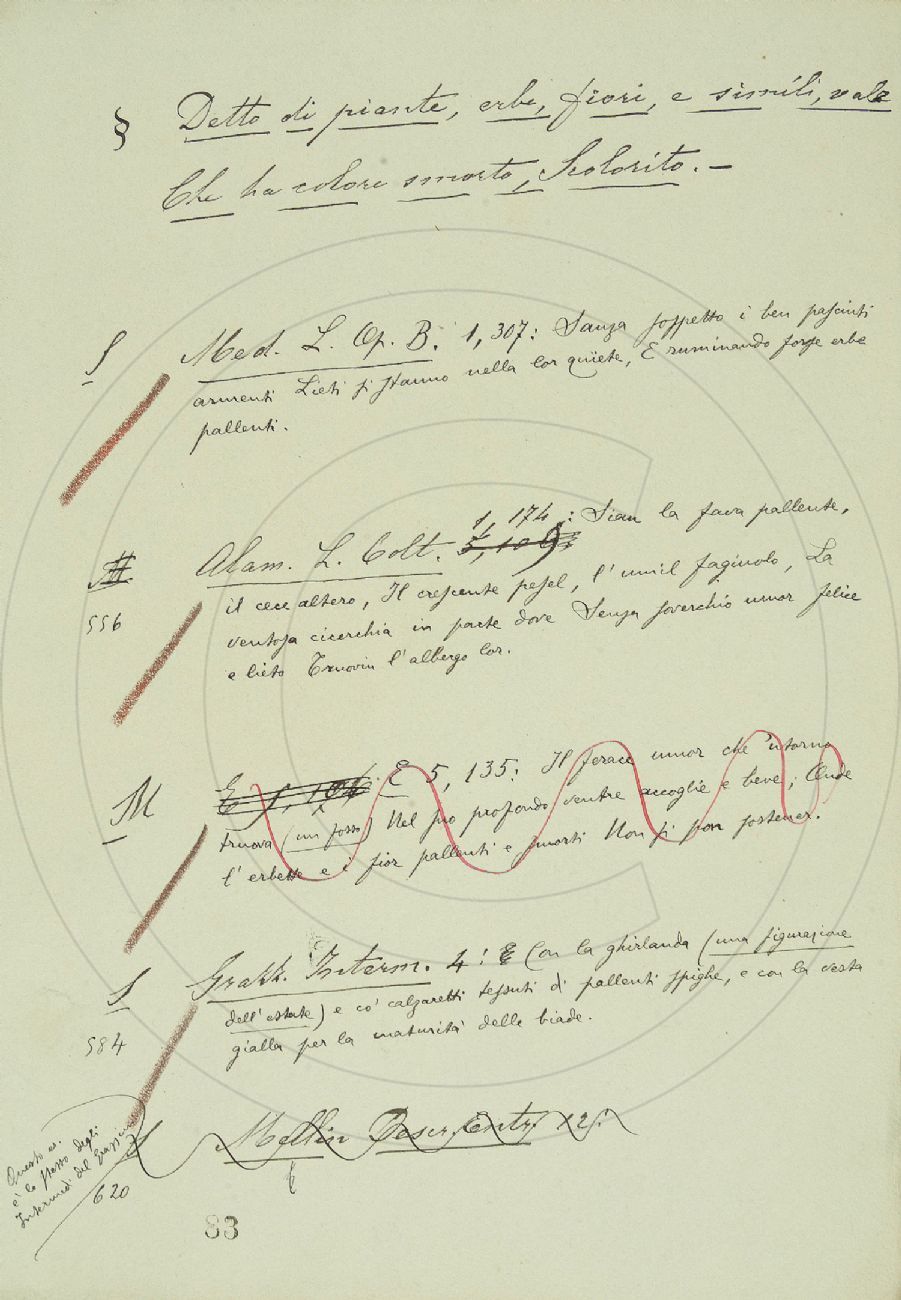 § Detto di piante, erbe, fiori, e simili, vale
Che ha colore smorto, Scolorito. —
S Med. L. Op. B. 1, 307: Sanza sospetto i ben pasciuti
armenti Lieti si stanno nella lor quïete, E ruminando forse erbe
pallenti.
M Alam. L. Colt. 5, 109: 1, 174: Sian la fava pallente,
556 il cece altero, Il crescente pesel, l'umil fagiuolo, La
ventosa cicerchia in parte dove Senza soverchio umor felice
e lieto Truovin l'albergo lor.
M E 5, 106 E 5, 135: Il ferace umor che 'ntorno
truova (un fosso) Nel suo profondo ventre accoglie e beve; Onde
l'erbette e i fior pallenti e smorti Non si pon sostener.
S Grazz. Interm. 4: E Con la ghirlanda (una figurazione
dell'estate) e co' calzaretti tessuti di pallenti spighe, e con la vesta
584 gialla per la maturità delle biade.
S Mellin Descr. Entr. 12:
Questo es.
è lo stesso degli
Intermedi del Grazzini
620
83
©